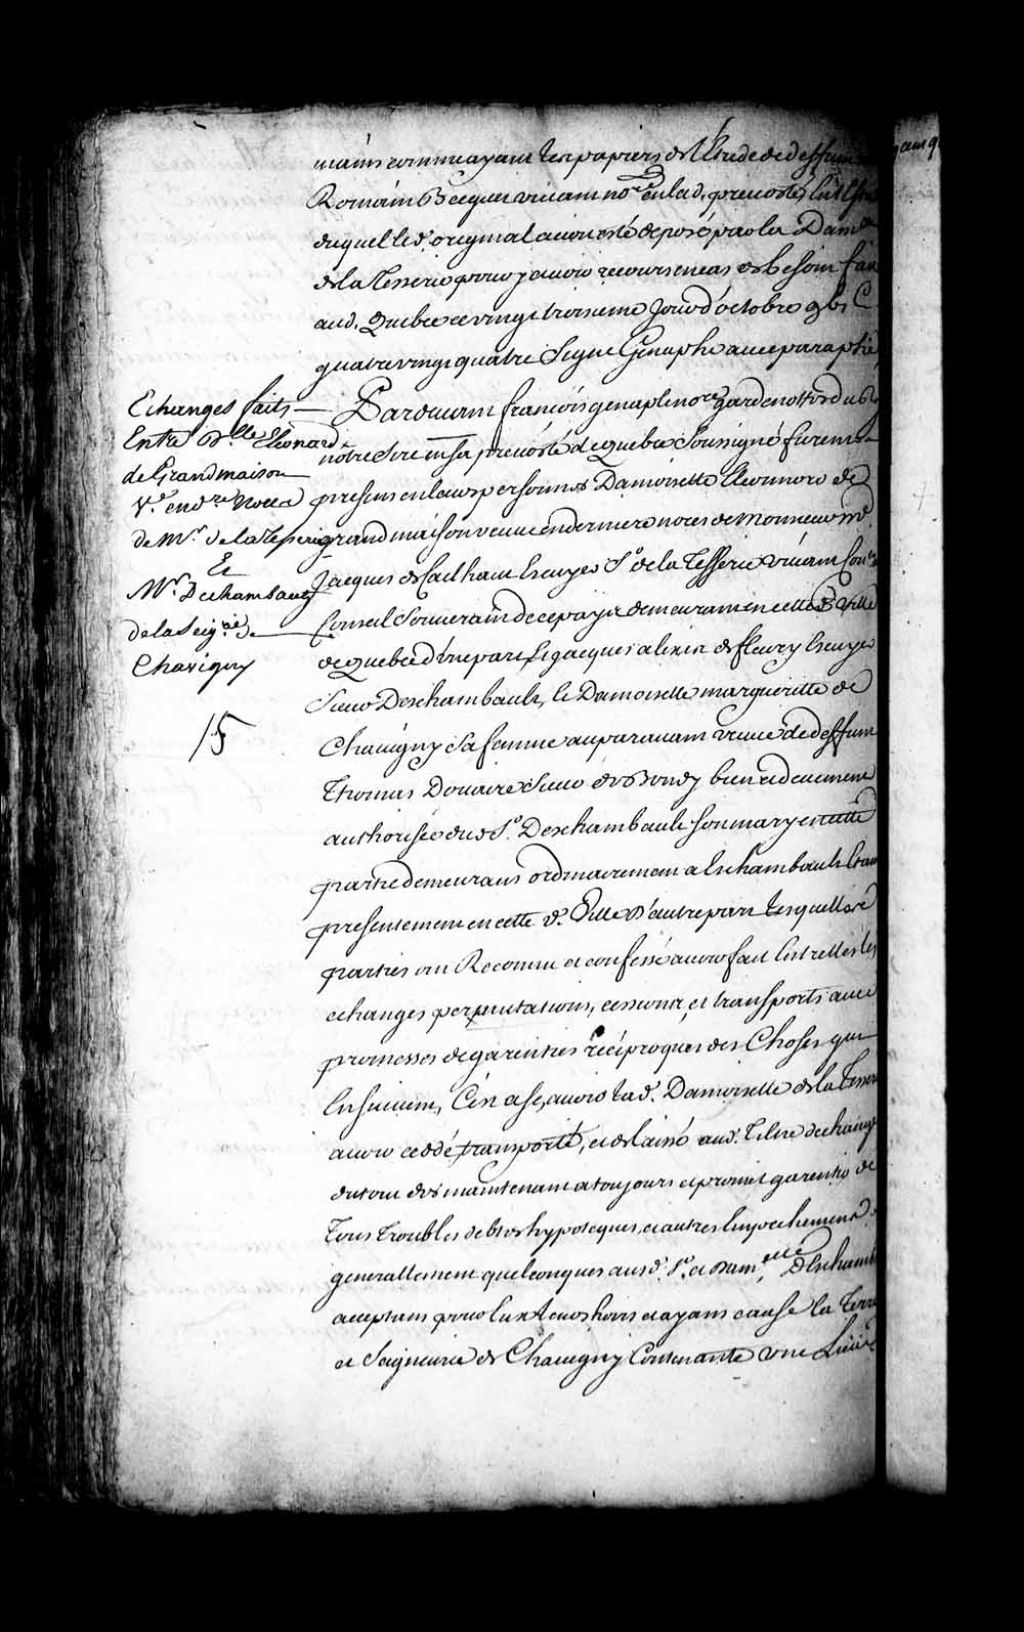 mains comme ayant les papiers de l'Etude de deffunt
Romain Becquet vivant no.re en lad. prevosté, en l'Est
duquel led. original avoit esté deposé par la Dam
de la Tesserie pour y avoir recours en cas de besoin fait
aud. Quebec ce vingt troisieme Jour d'octobre gbi C
quatre vingt quatre Signé Genaple avec paraphe
Echanges faits
Entre D.lle Eleonard
de Grandmaison
V.e en d.re Noces
de Mr. de la Tesserie
Et
Mr. Dechambault
de la Seig.rie de
Chavigny
15
Pardevant françois genaple no.re garde nottes du Roy
nôtre Sire en sa prevosté de Quebec Soussigné furent
presens en leurs personnes Damoiselle Eleonnore de
grand maison veuve en derniere noces de Monsieur M.
Jacques de Cailhaut Escuyer S.r de la Tesserie vivant Con.er
Conseil Souverain de ce payis demeurant en cette d. Ville
de Quebec d'une part, Et Jacques alexis de fleury Escuyer
Sieur Deschambault, et Damoiselle margueritte de
Chavigny Sa femme auparavant veuve de deffunt
Thomas Douaire Sieur de Bondy bien et deuement
authorisée dud S.r Deschambault son mary en cette
partie demeurans ordinairement a Eschambault Etant
presentement en cette d. Ville d'autre part Lesquelles
parties ont Reconnu et confessé avoir fait Entrelles les
echanges permutations, cessions, et transports avec
promesses de garenties réciproques des Choses qui
Ensuivent, C'est a sç.avoir lad. Damoiselle de la Tesserie
avoir ceddé, transporté, et delaissé aud. Tiltre dechange
du tout des maintenant a toujours et promet garentir de
Tous Troubles debtes hypoteques, et autres Empechemens
generallement quelconques ausd. S.r et Dam.elle Deschamb
acceptans pour Eux Leurs hoirs et ayans cause la Terre
et Seigneurie de Chavigny Contenante une Lieüe